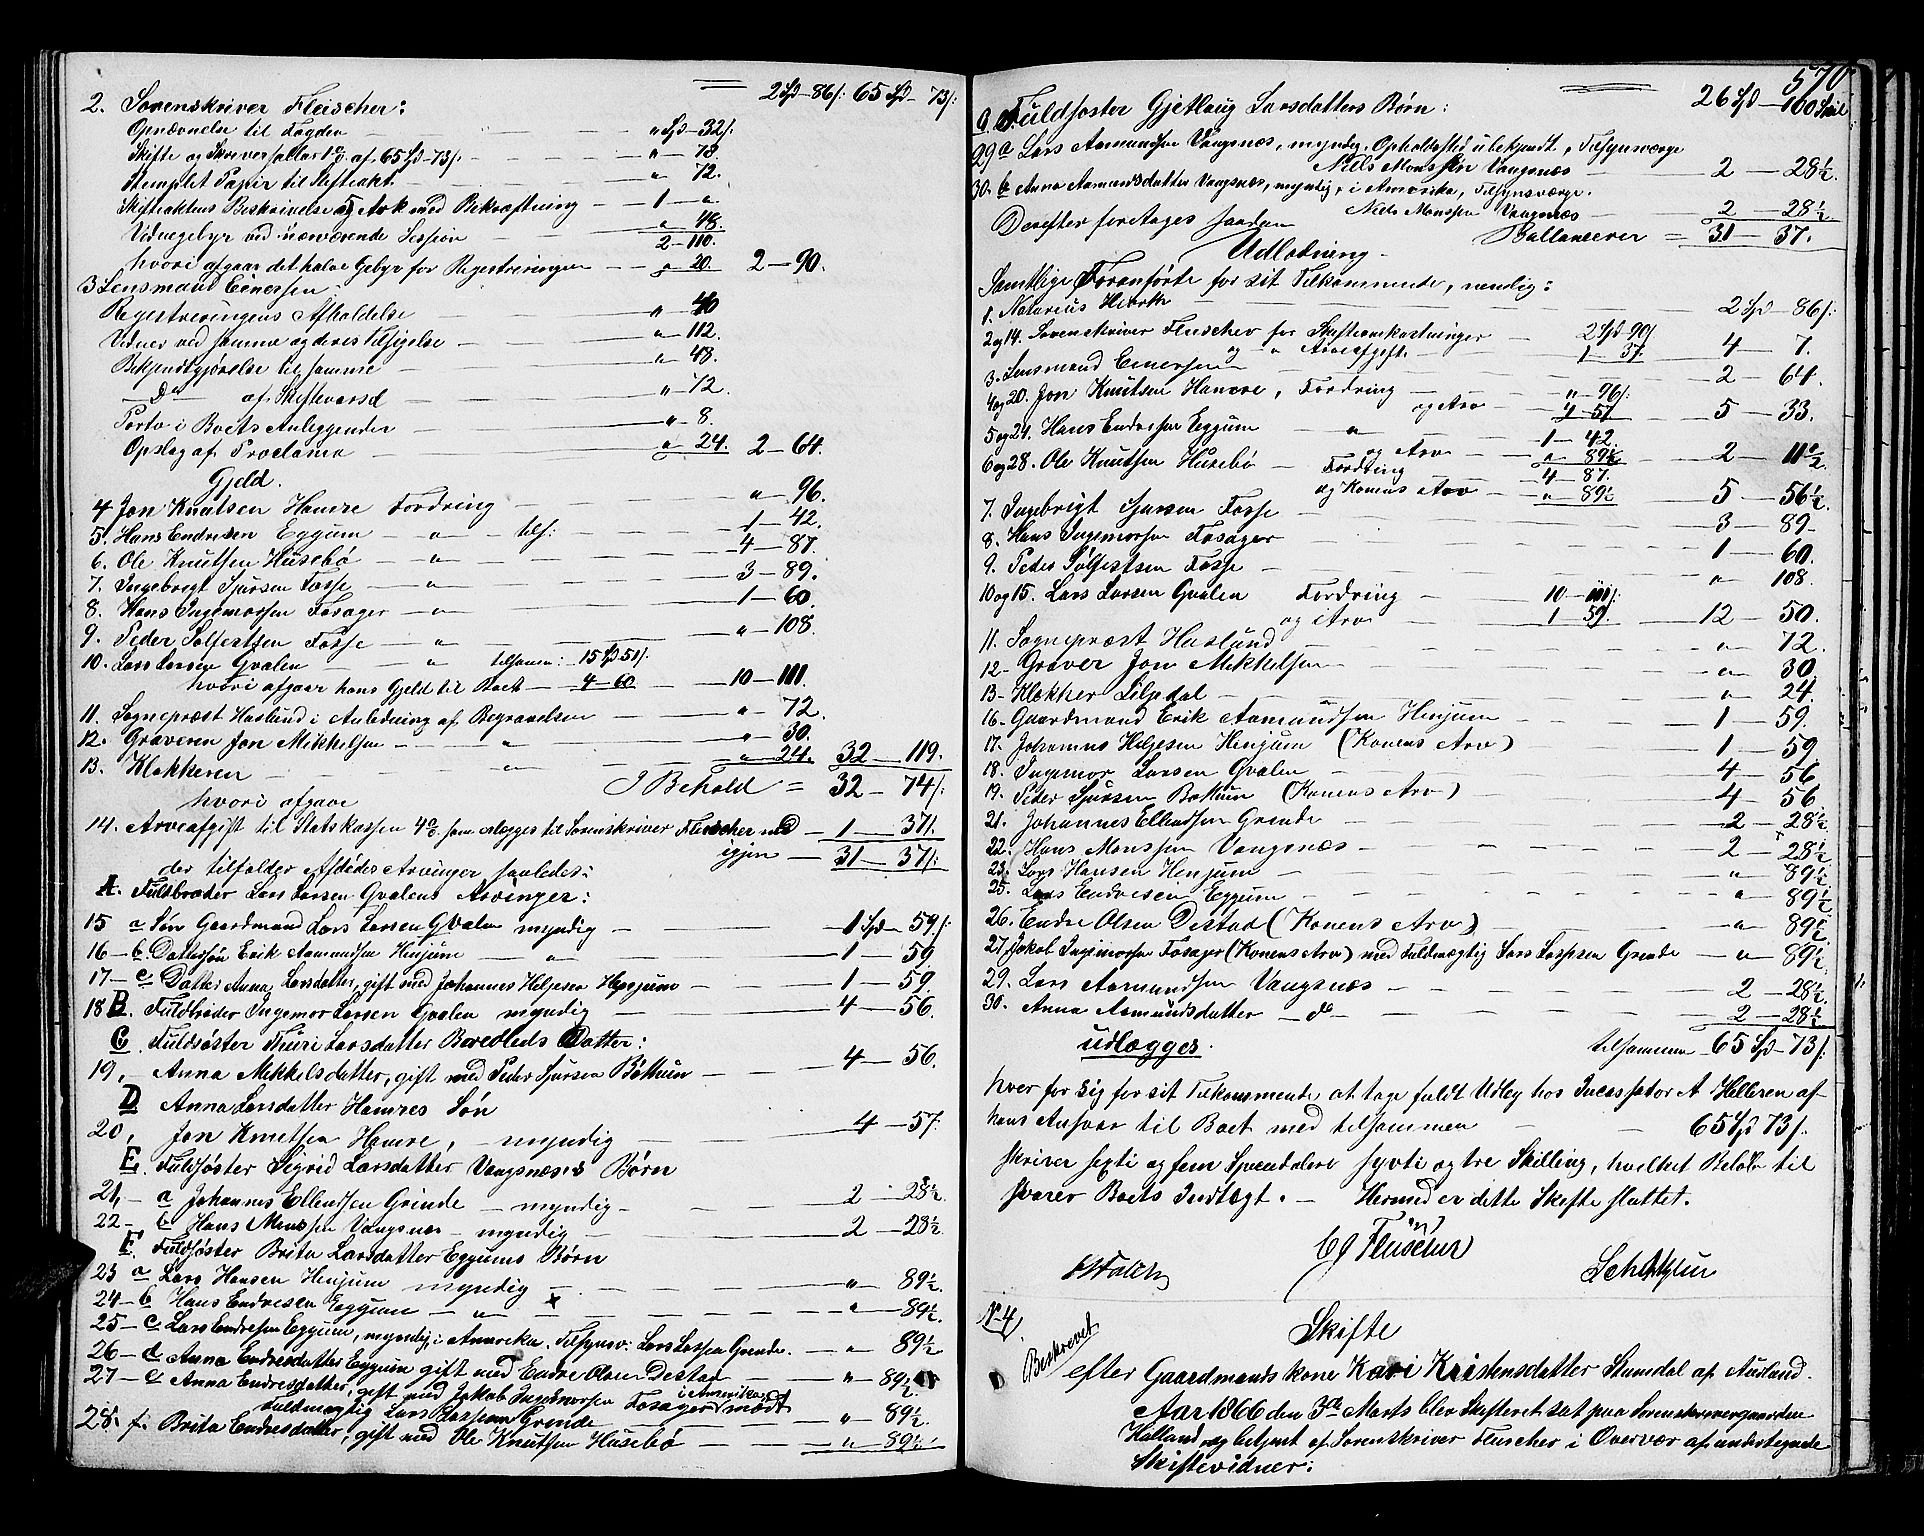 2 Spd – 86 s: 65 Spd – 73 s:
2. Sorenskriver Fleischer:
Opnævnelse til Fogden — „ Spd – 32 s:
Skifte og Skriversallar 1 % af 65 Spd – 73 s: — „ – 78.
Stemplet Papir til Skifteakt — „ – 72.
Skifteaktens Beskrivelse 5 Ark med Bekræftning — 1 – „
Vidnegebyr ved nærværende Session — „ 48.
2 – 110.
hvori afgaar det halve Gebyr for Registreringen — „ 20. 2 – 90.
3 Lensmand Einersen:
Registreringens Afholdelse — „ – 40
Vidner ved samme og deres Tilsigelse — „ – 112.
Bekjendtgjørelse til samme — „ – 48.
— Do — af Skiftevarsel — „ – 72
Porto i Boets Anleggender — „ – 8.
Opslag af Proclama — „ – 24. 2 – 64.
Gjeld.
4 Jon Knutsen Hamre Fordring — „ – 96.
5. Hans Endresen Eggum — „ — tils: — 1 – 42.
6. Ole Knutsen Husebø — „ — 4 – 87.
7. Ingebrigt Sjursen Fosse — „ — 3 – 89.
8. Hans Ingemorsen Fosager — „ — 1 – 60.
9. Peder Solfestsen Fosse — „ — „ – 108.
10. Lars Larsen Qvalen — „ tilsamm: 15 Spd 51 s:
hvori afgaar hans Gjeld til Boet — 4 – 60 — 10 – 111.
11. Sognepræst Haslund i Anledning af Begravelsen — „ – 72.
12. Graveren Jon Mikkelsen — „ — „ – 30.
13. Klokkeren — „ — „ – 24. 32 – 119.
I Behold = 32 – 74 s:
hvori afgaar
14. Arveafgift til Statskassen 4 % som erlægges til Sorenskriver Fleischer med — 1 – 37 s.
igjen — 31 – 37 s:
der tilfalder Afdødes Arvinger saaledes:
A. Fuldbroder Lars Larsen Qvalens Arvinger:
15 a Søn Gaardmand Lars Larsen Qvalen myndig — 1 Spd – 59 s:
16 – b. Dattersøn Erik Aamundsen Henjum — „ — 1 – 59
17 – c Datter Anna Larsdatter, gift med Johannes Heljesen Henjum — 1 – 59.
18 B. Fuldbroder Ingemor Larsen Qvalen myndig — 4 – 56.
C. Fuldsøster Thuri Larsdatter Børeødeds Datter:
19, – Anna Mikkelsdatter, gift med Peder Sjursen Bøthun — 4 – 56.
D Anna Larsdatter Hamres Søn
20, Jon Knutsen Hamre, – myndig — 4 – 57.
E. Fuldsøster Sigrid Larsdatter Vangsnæs's Børn
21, – a Johannes Ellendsen Grinde – myndig — 2 – 28½.
22 – b Hans Monssen Vangsnæs – myndig — 2 – 28½.
F. Fuldsøster Brita Larsdatter Eggums Børn
23 a Lars Hansen Henjum myndig — „ – 89½.
24 – b Hans Endresen Eggum — „ — „ – 89½.
25 – c Lars Endresen Eggum, myndig, i Amerika. Tilsynsv: Lars Larsen Grinde. — „ – 89½
26 – d Anna Endresdatter Eggum gift med Endre Olsen Destad — „ – 89½
27 – e Anna Endresdatter, gift med Jakob Ingemorsen Fosager i Amerika, med
Fuldmægtig Lars Larsen Grinde — „ – 89½.
28. f. Brita Endresdatter, gift med Ole Knutsen Husebø — „ – 89½.
570.
26 Spd – 100 Skil
G. Fuldsøster Gjetlaug Larsdatters Børn:
29 a Lars Aamundsen Vangsnæs, myndig, Opholdssted ubekjendt, Tilsynsværge
Niels Monssen Vangsnæs — 2 – 28½.
30. b Anna Aamundsdatter Vangsnæs, myndig, i Amerika, Tilsynsværge.
Niels Monssen Vangsnæs — 2 – 28½
Derefter foretages saadan Ballancerer = 31 – 37.
Udlodning.
Samtlige Foranførte for sit Tilkommende, nemlig:
1. Notarius Heierk — 2 Spd – 86 s:
2 og 14. Sorenskriver Fleischer for Skifteomkostninger 2 Spd 90 s
og „ Arveafgift — 1 – 37. 4 – 7.
3. Lensmand Einersen — 2 – 64.
4 og 20. Jon Knutsen Hamre, Fordring — „ – 96 s:
og Arv — 4 – 57 — 5 – 33.
5 og 24. Hans Endresen Eggum — „ — 1 – 42.
og Arv — „ 89½ — 2 – 11½.
6 og 28. Ole Knutsen Husebø — Fordring — 4 – 87.
og Konens Arv — „ – 89½ — 5 – 56½
7. Ingebrigt Sjursen Fosse — 3 – 89 –
8. Hans Ingemorsen Fosager — 1 – 60.
9. Peder Solfestsen Fosse — „ 108.
10 og 15. Lars Larsen Qvalen Fordring — 10 – 111 s:
og Arv — 1 59. — 12 – 50.
11. Sognepræst Haslund — „ – 72.
12 – Graver Jon Mikkelsen — „ 30.
13 – Klokker Liljedal — „ – 24.
16 – Gaardmand Erik Aamundsen Henjum — 1 – 59.
17. Johannes Heljesen Henjum (Konens Arv) — 1 – 59
18. Ingemor Larsen Qvalen — 4 – 56
19. Peder Sjursen Bøthun (Konens Arv) — 4 – 56
21. Johannes Ellendsen Grinde — 2 – 28½
22. Hans Monssen Vangsnæs — 2 – 28½
23. Lars Hansen Henjum — „ – 89½
25. Lars Endresen Eggum — „ – 89½
26. Endre Olsen Destad (Konens Arv) — „ – 89½
27 Jakob Ingemorsen Fosager (Konens Arv) med Fuldmægtig Lars Larsen Grinde — „ – 89½
29. Lars Aamundsen Vangsnæs — 2 – 28½.
30. Anna Aamundsdatter — do — 2 – 28½
udlægges. tilsammen 65 Spd – 73 s:
hver for sig for sit Tilkommende, at tage fuldt Udlæg hos Incassator A Helleren af
hans Ansvar til Boet med tilsammen — 65 Spd 73 s:
skriver sexti og fem Speciedaler syvti og tre Skilling, hvilket Beløb til
svarer Boets Indtægt. – Hermed er dette Skifte sluttet.
Fleischer
No 4
Beskrevet
Skifte
efter Gaardmands kone Kari Kristensdatter Stumdal af Aurland.
Aar 1866 den 3de Marts blev Skifteret sat paa Sorenskrivergaarden
Hulland og betjent af Sorenskriver Fleischer i Overvær af undertegnede
Skiftevidner: